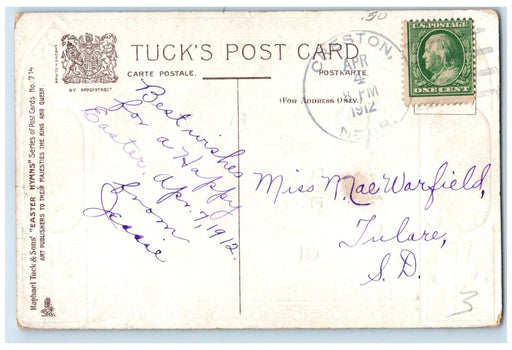 .50
TUCK'S POST CARD
CARTE POSTALE.
POSTKARTE.
BY APPOINTMENT
(FOR ADDRESS ONLY.)
CRESTON,
APR
4
8 PM
1912
NEBR.
U.S. POSTAGE
ONE CENT
Raphael Tuck & Sons' "EASTER HYMNS" Series of Post Cards No. 714
ART PUBLISHERS TO THEIR MAJESTIES THE KING AND QUEEN.
Best wishes
for a Happy
Easter. Apr. 7, 1912.
from
Jessie
Miss Mae Warfield,
Tulare,
S.D.
3